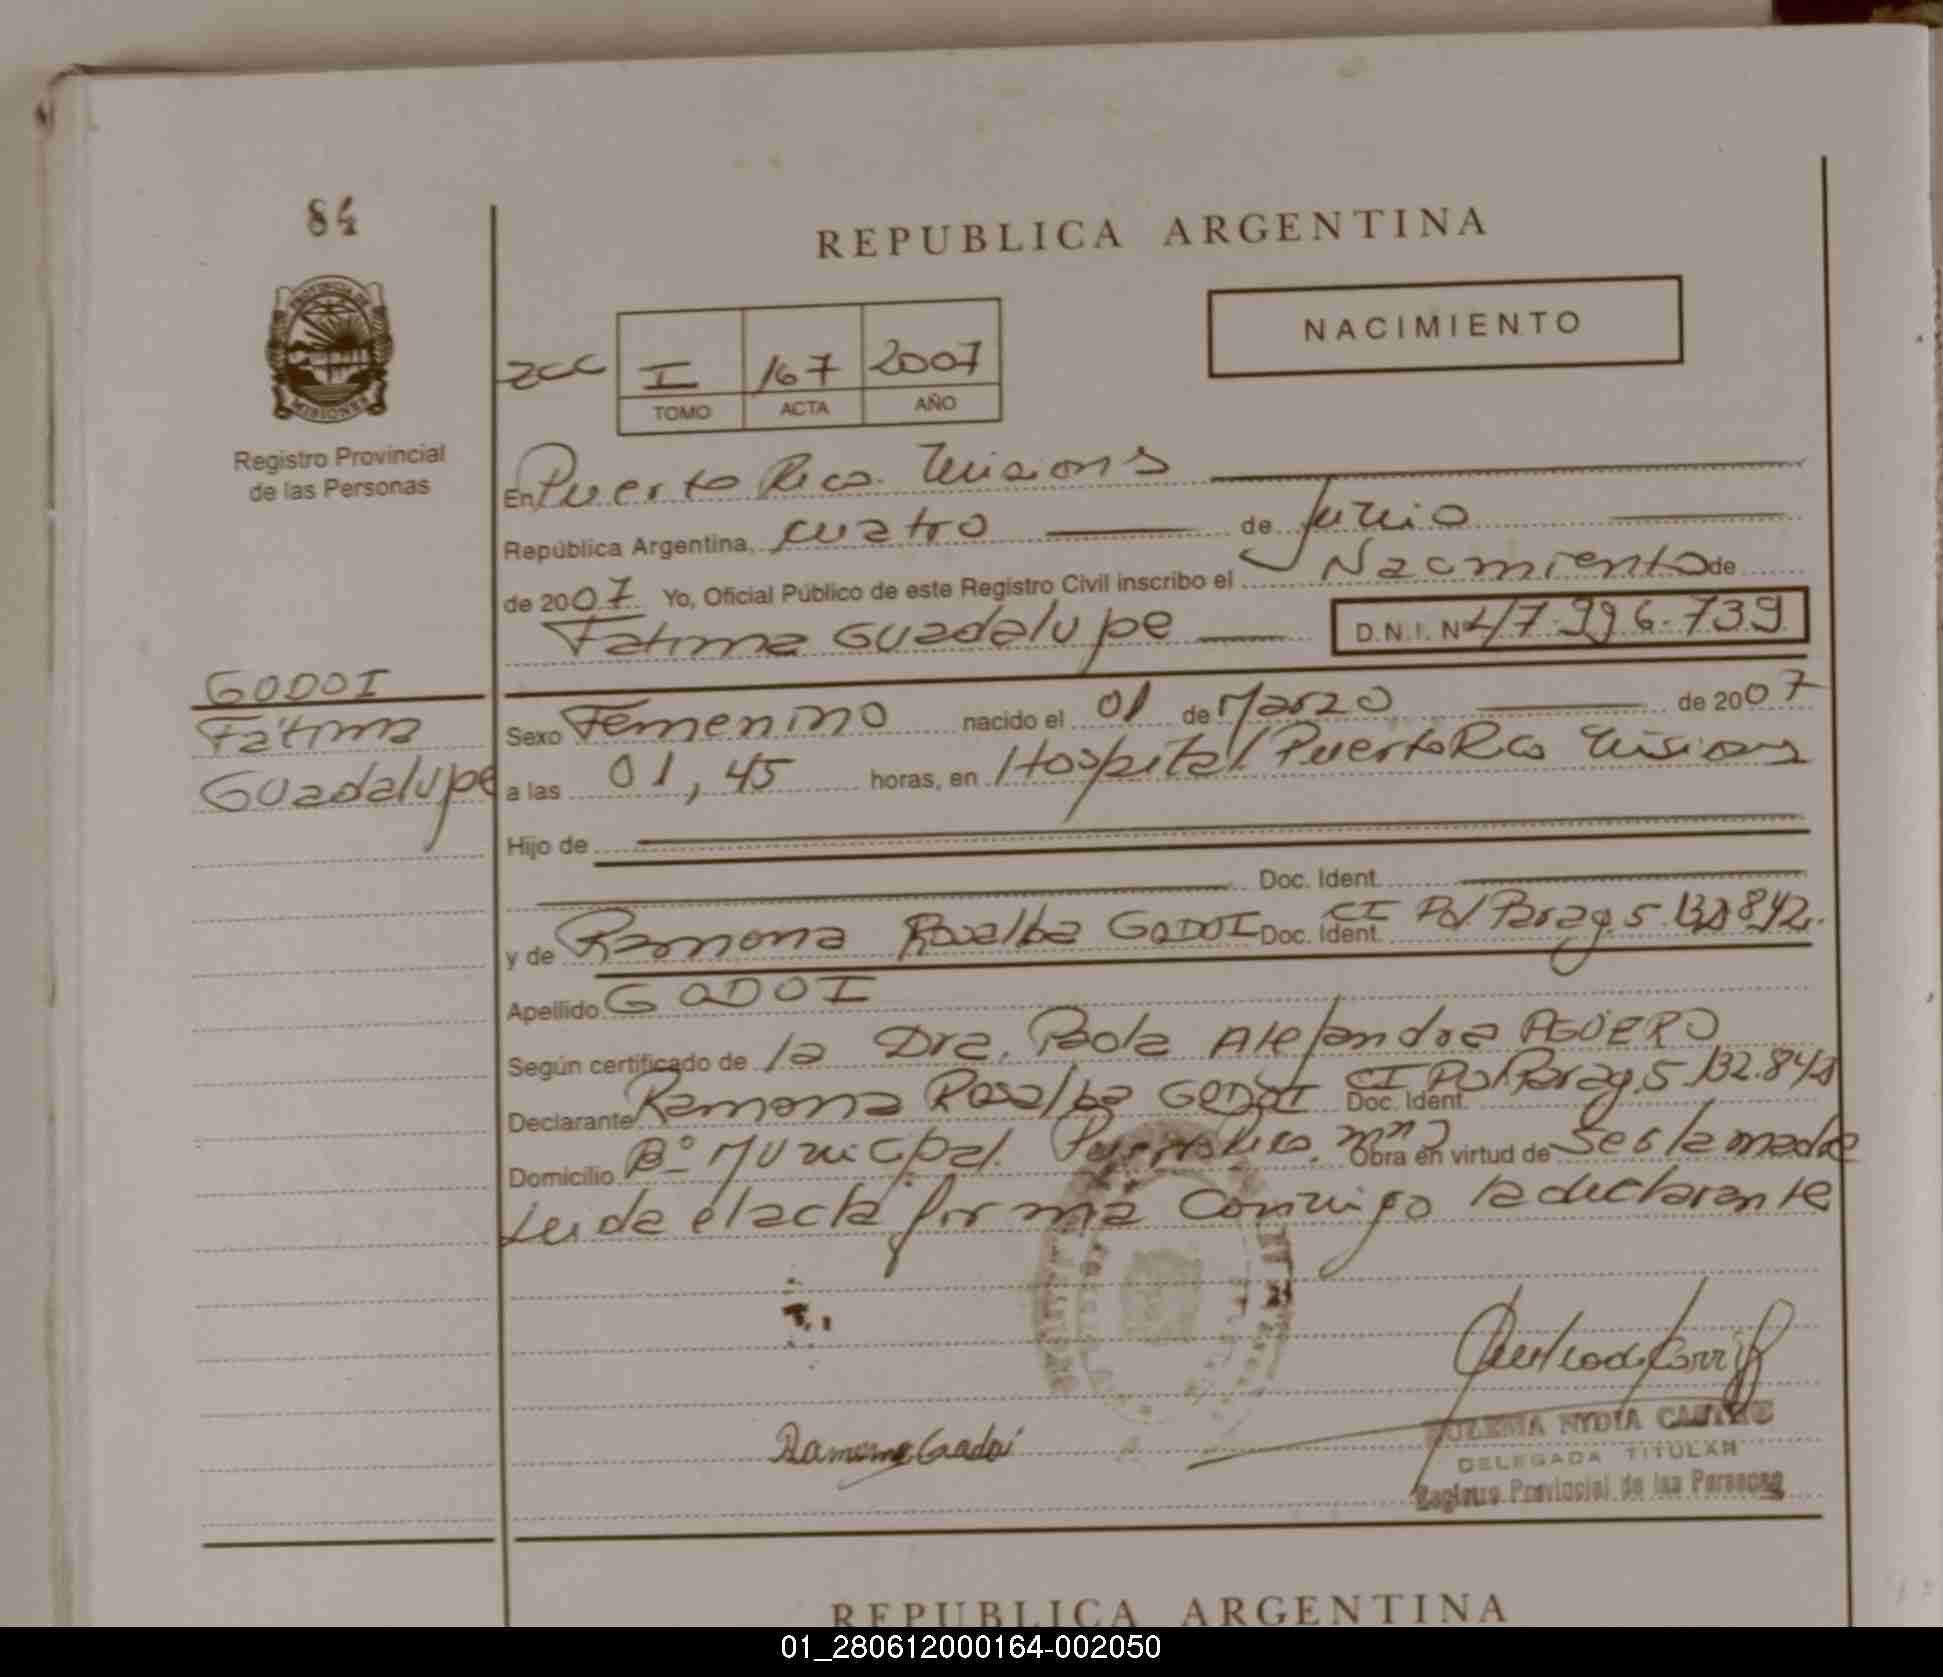 84
REPUBLICA ARGENTINA
PROVINCIA DE
MISIONES
NACIMIENTO
I 167 2007
TOMO ACTA AÑO
Registro Provincial
de las Personas
En Puerto Rico. Misiones
República Argentina, cuatro de Junio
de 2007 Yo, Oficial Público de este Registro Civil inscribo el Nacimiento de
Fatima Guadalupe D.N.I. Nº 47.996.739
GODOI
Fátima
Guadalupe
Sexo Femenino nacido el 01 de Marzo de 2007
a las 01,45 horas, en Hospital Puerto Rico Misiones
Hijo de
Doc. Ident.
y de Ramona Rosalba GODOI Doc. Ident. CI Pol Parag. 5.132.842.
Apellido GODOI
Según certificado de la Dra. Paola Alejandra AGÜERO
Declarante Ramona Rosalba GODOI Doc. Ident. CI Pol Parag. 5.132.842
Domicilio Bº Municipal. Puerto Rico. Mnes Obra en virtud de ser la madre
Leida el acta firma conmigo la declarante
Ramona Godoi
ZULEMA NYDIA
DELEGADA TITULAR
Registro Provincial de las Personas
REPUBLICA ARGENTINA
01_280612000164-002050